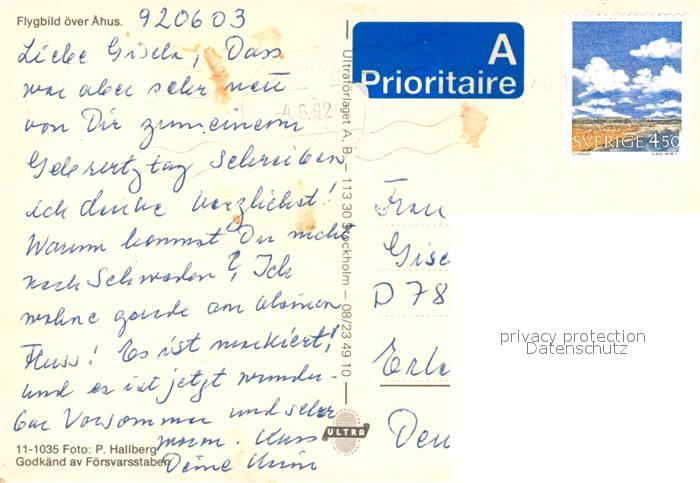 Flygbild över Åhus.
920603
Liebe Gisela, Dass
war aber sehr nett
von Dir zu meinem
Geburtztag schreiben,
ich danke herzlichst!
Warum kommst Du nicht
nach Schweden? Ich
wohne gerade am kleinen
Fluss! Es ist markiert!
und es ist jetzt wunder-
bar Vorsommer und sehr
warm. Kuss
Deine
11-1035 Foto: P. Hallberg
Godkänd av Försvarsstaben
Ultraförlaget A. B. – 113 30 Stockholm – 08/23 49 10
ULTRA
-4.6.92
A
Prioritaire
SVERIGE 4.50
Frau
Gise
D 78
Erla
Deu
privacy protection
Datenschutz